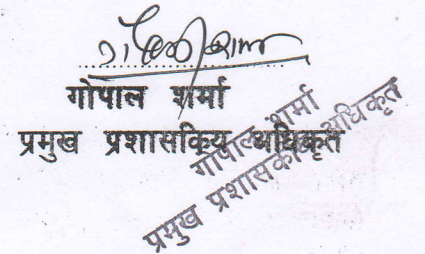 गोपाल शर्मा
प्रमुख प्रशासकिय अधिकृत
गोपाल शर्मा
प्रमुख प्रशासकीय अधिकृत